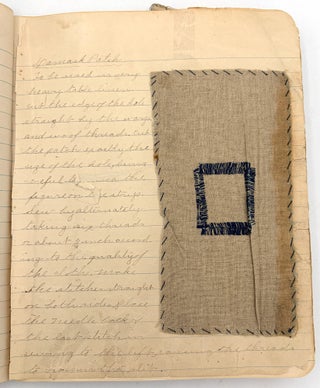 Damask Patch
To be used on very
heavy table linen
cut the edge of the hole
straight by the warp
and woof threads. Cut
the patch exactly the
size of the hole, being
careful to match the
figures or the strips.
Sew by alternately
taking six threads
or about ⅛ inch accord-
ing to the quality of
the cloth, make
the stitches straight
on both sides &
the needle back of
the last stitch in
to the left, the threads